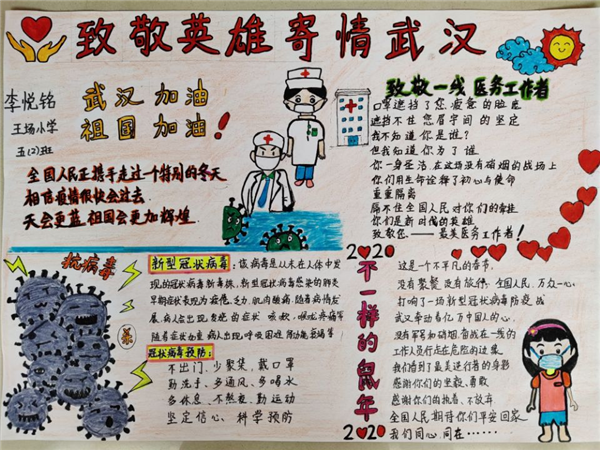 致敬英雄寄情武汉
李悦铭
王场小学
五(2)班
武汉加油
祖国加油!
全国人民正携手走过一个特别的冬天
相信疫情很快会过去
天会更蓝祖国会更加辉煌.
致敬一线医务工作者
口罩遮挡了您疲惫的脸庞
遮挡不住您眉宇间的坚定
我不知道你是谁?
但我知道你为了谁
你一身圣洁,在这场没有硝烟的战场上
你们用生命诠释了初心与使命
重重隔离
隔不住全国人民对你们的牵挂
你们是新时代的英雄
致敬您——最美医务工作者!
抗病毒
杀
新型冠状病毒:该病毒是从未在人体中发
现的冠状病毒新毒株,新型冠状病毒感染的肺炎
早期症状表现为疲倦,乏力,肌肉酸痛,随着病情发
展,病人出现
随着症状加重,病人出现呼吸困难
冠状病毒预防:
不出门、少聚集、戴口罩
勤洗手、多通风、多喝水
多休息、不熬夜、勤运动
坚定信心、科学预防
2020
不一样的鼠年
2020
这是一个不平凡的春节,
没有聚餐 没有旅游,全国人民,万众一心,
打响了一场新型冠状病毒防疫战
武汉牵动着亿万中国人的心.
没有军号和硝烟,奋战在一线的
工作人员行走在危险的边缘
我们看到了最美逆行者的身影
感谢你们的坚毅、勇敢
感谢你们的执着、不放弃
全国人民期待你们平安回家
我们同心,同在······